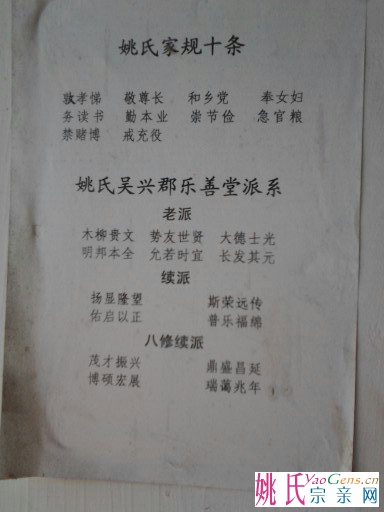 姚氏家规十条
敦孝悌 敬尊长 和乡党 奉女妇
务读书 勤本业 崇节俭 急官粮
禁赌博 戒充役
姚氏吴兴郡乐善堂派系
老派
木柳贵文 势友世贤 大德士光
明邦本全 允若时宜 长发其元
续派
扬显隆望 斯荣远传
佑启以正 普乐福绵
八修续派
茂才振兴 鼎盛昌延
博硕宏展 瑞蔼兆年
姚氏YaoGens.cn
宗亲网